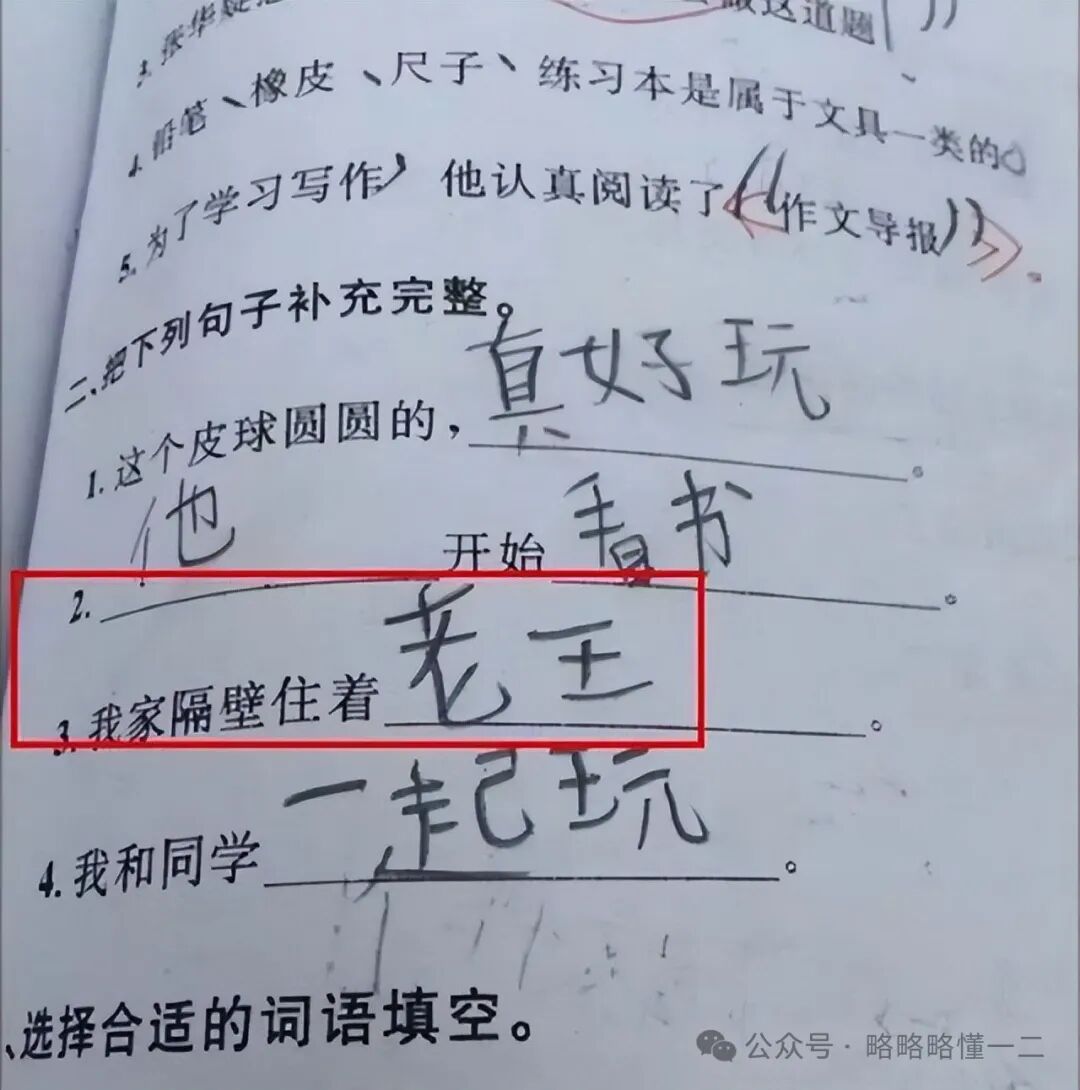 3. 张华 做这道题))
4. 铅笔、橡皮、尺子、练习本是属于文具一类的。
5. 为了学习写作,他认真阅读了《作文导报》。
二、把下列句子补充完整。
1. 这个皮球圆圆的,真好玩。
2. 他开始看书。
3. 我家隔壁住着老王。
4. 我和同学一起玩。
、选择合适的词语填空。
公众号·略略略懂一二